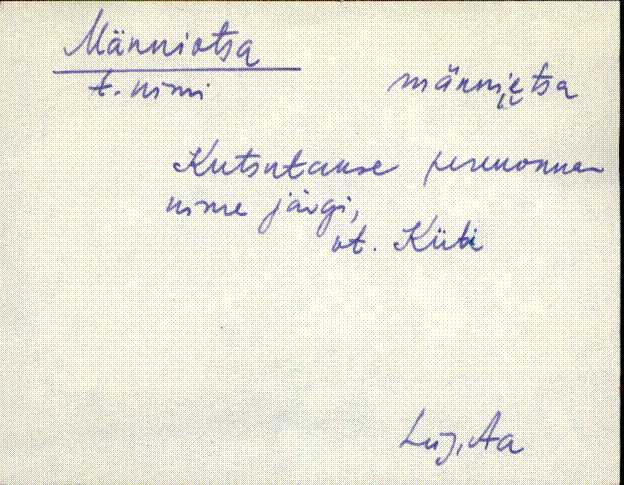 Männiotsa
t. nimi männietsa
Kutsutakse perekonna-
nime järgi,
vt. Küti
Lüg, Aa